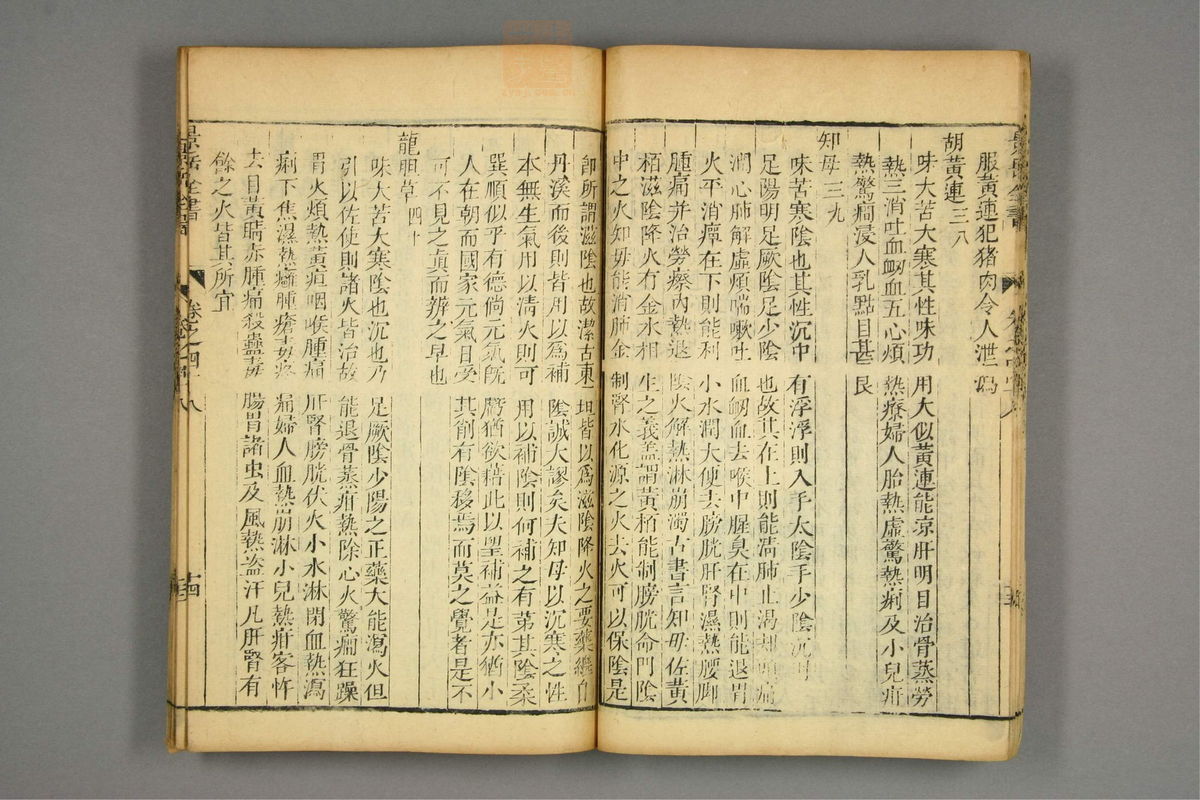 服黃連犯猪肉令人泄瀉
胡黃連三八
味大苦大寒其性味功用大似黃連能凉肝明目治骨蒸勞
熱三消吐血衂血五心煩熱療婦人胎熱虛驚熱痢及小兒疳
熱驚癇浸人乳點目甚良
知母三九
味苦寒陰也其性沉中有浮浮則入手太陰手少陰沉則
足陽明足厥陰足少陰也故其在上則能清肺止渴却頭痛
潤心肺解虛煩喘嗽吐血衂血去喉中腥臭在中則能退胃
火平消癉在下則能利小水潤大便去膀胱肝腎濕熱腰脚
腫痛并治勞瘵內熱退陰火解熱淋崩濁古書言知母佐黃
栢滋陰降火有金水相生之義葢謂黃栢能制膀胱命門陰
中之火知母能消肺金制腎水化源之火去火可以保陰是
即所謂滋陰也故潔古東垣皆以爲滋陰降火之要藥繼自
丹溪而後則皆用以爲補陰誠大謬矣夫知母以沉寒之性
本無生氣用以清火則可用以補陰則何補之有第其陰柔
巽順似乎有德倘元氣旣虧猶欲藉此以望補益是亦猶小
人在朝而國家元氣日受其削有陰移焉而莫之覺者是不
可不見之真而辨之早也
龍胆草四十
味大苦大寒陰也沉也乃足厥陰少陽之正藥大能瀉火但
引以佐使則諸火皆治故能退骨蒸疳熱除心火驚癇狂躁
胃火煩熱黃疸咽喉腫痛肝腎膀胱伏火小水淋閉血熱瀉
痢下焦濕熱癰腫瘡毒疼痛婦人血熱崩淋小兒熱疳客忤
去目黃睛赤腫痛殺蠱毒腸胃諸虫及風熱盗汗凡肝腎有
餘之火皆其所宜
景岳全書
卷之四十八
十四